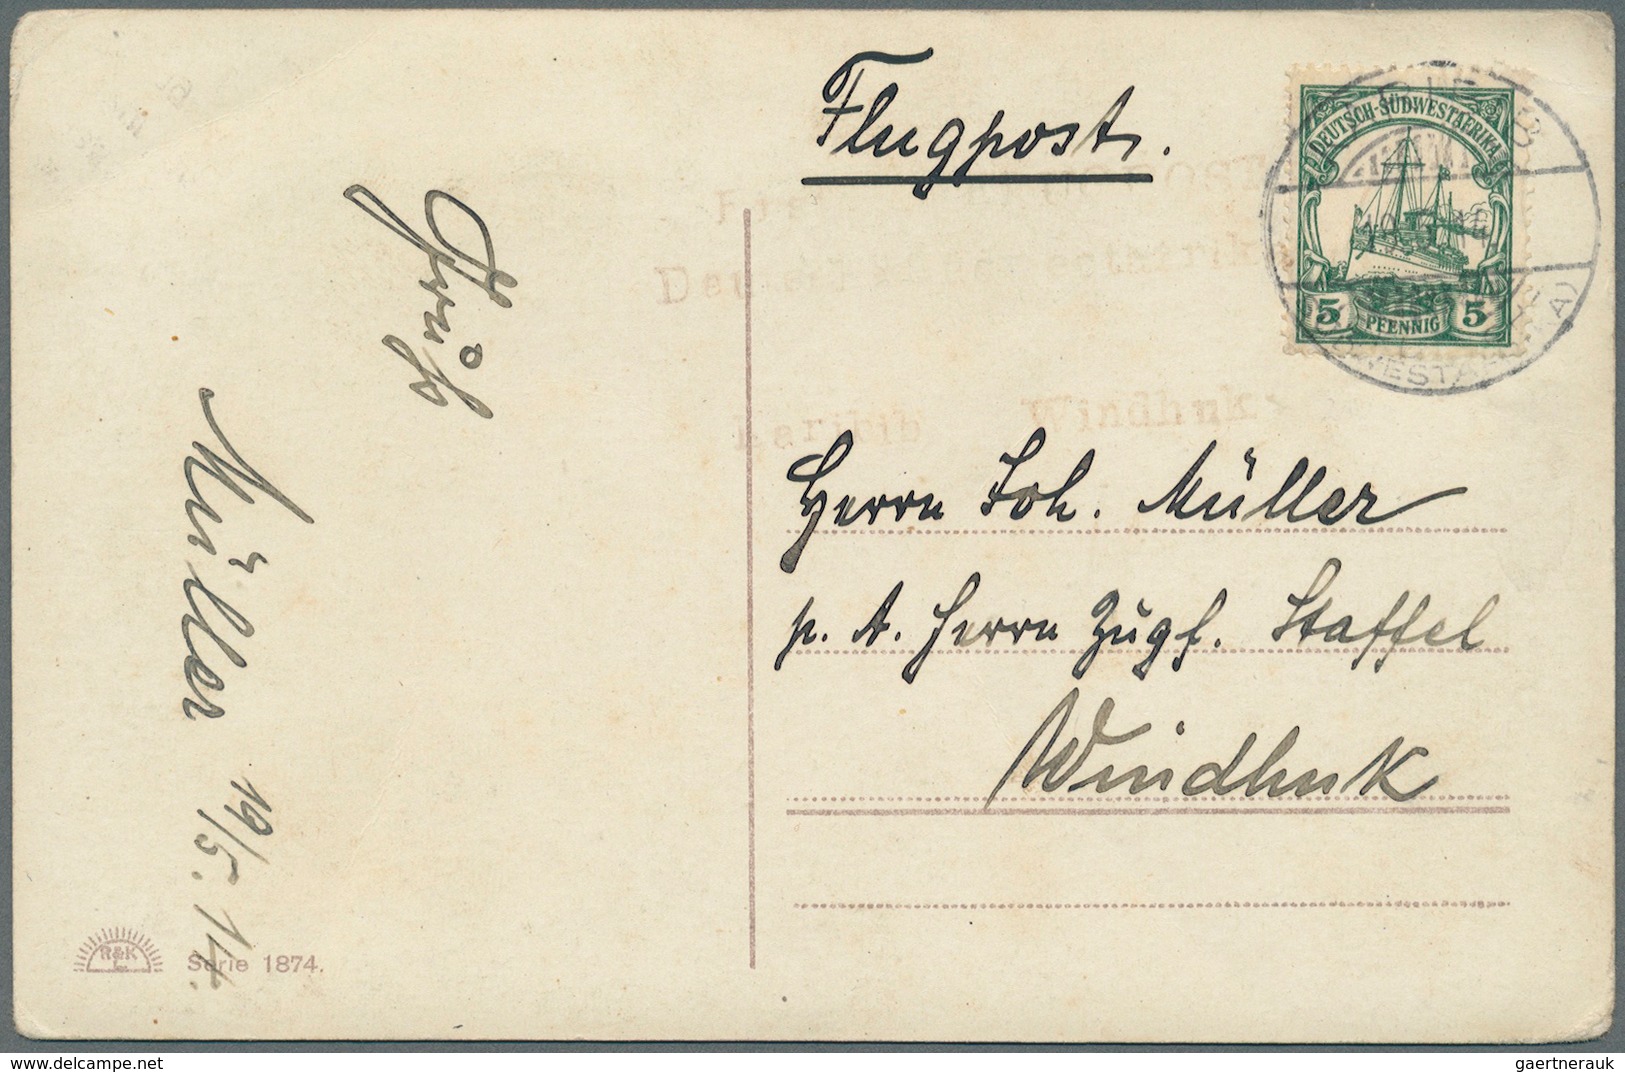 Flugpost.
DEUTSCH-SÜDWESTAFRIKA
5 PFENNIG 5
Karibib Windhuk
Herrn Joh. Müller
p. A. Herrn Zügf. Staffel
Windhuk
Gruß
Müller 19/5.14.
R&K
L.
Serie 1874.
www.delcampe.net
gaertnerauk